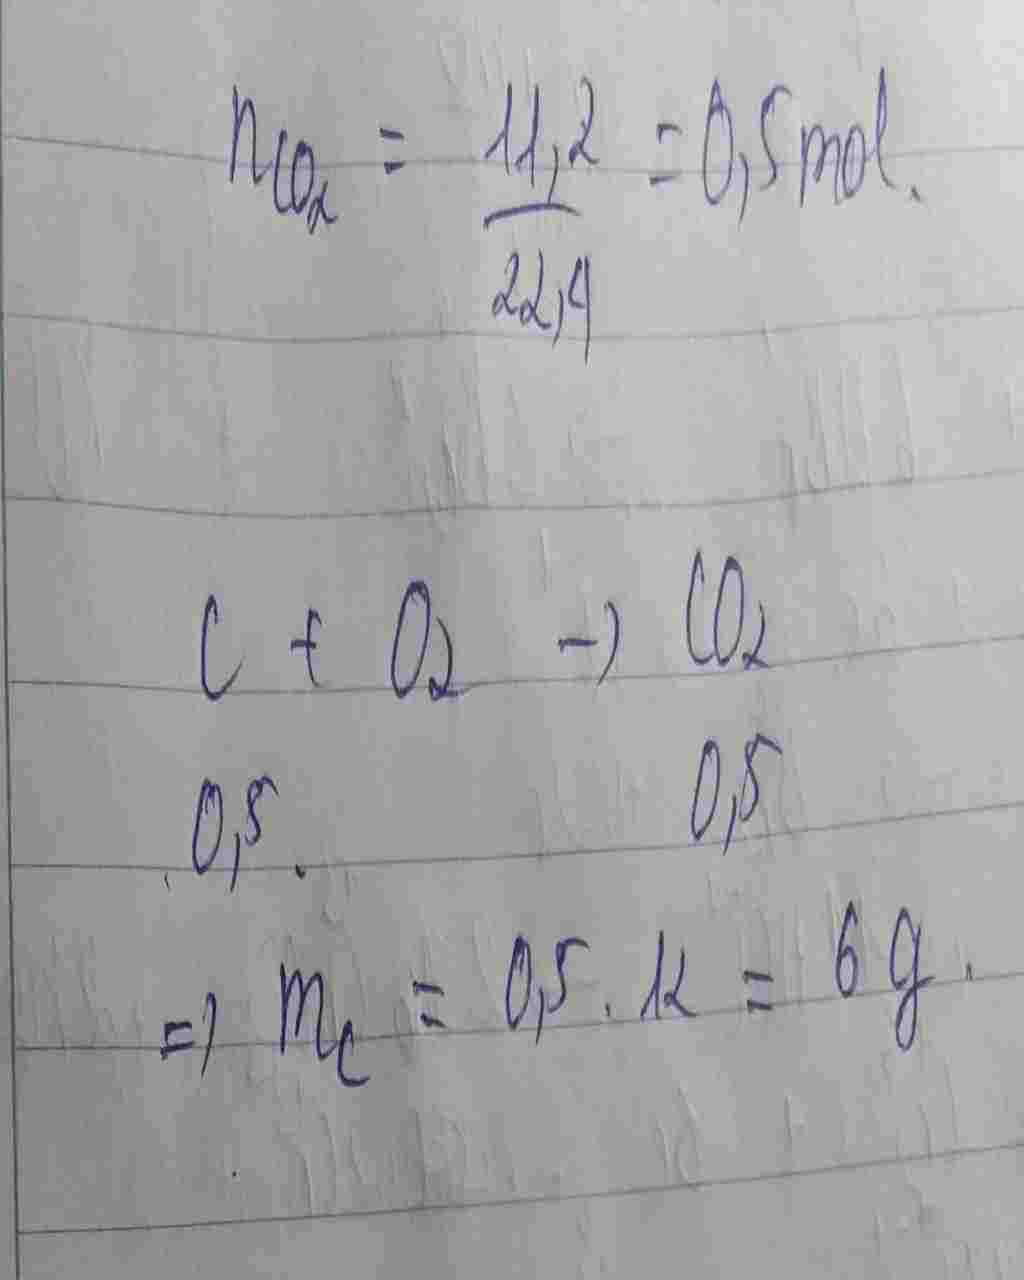 nCO₂ = 11,2/22,4 = 0,5 mol.
C + O₂ → CO₂
0,5. 0,5
=> mC = 0,5 . 12 = 6 g.